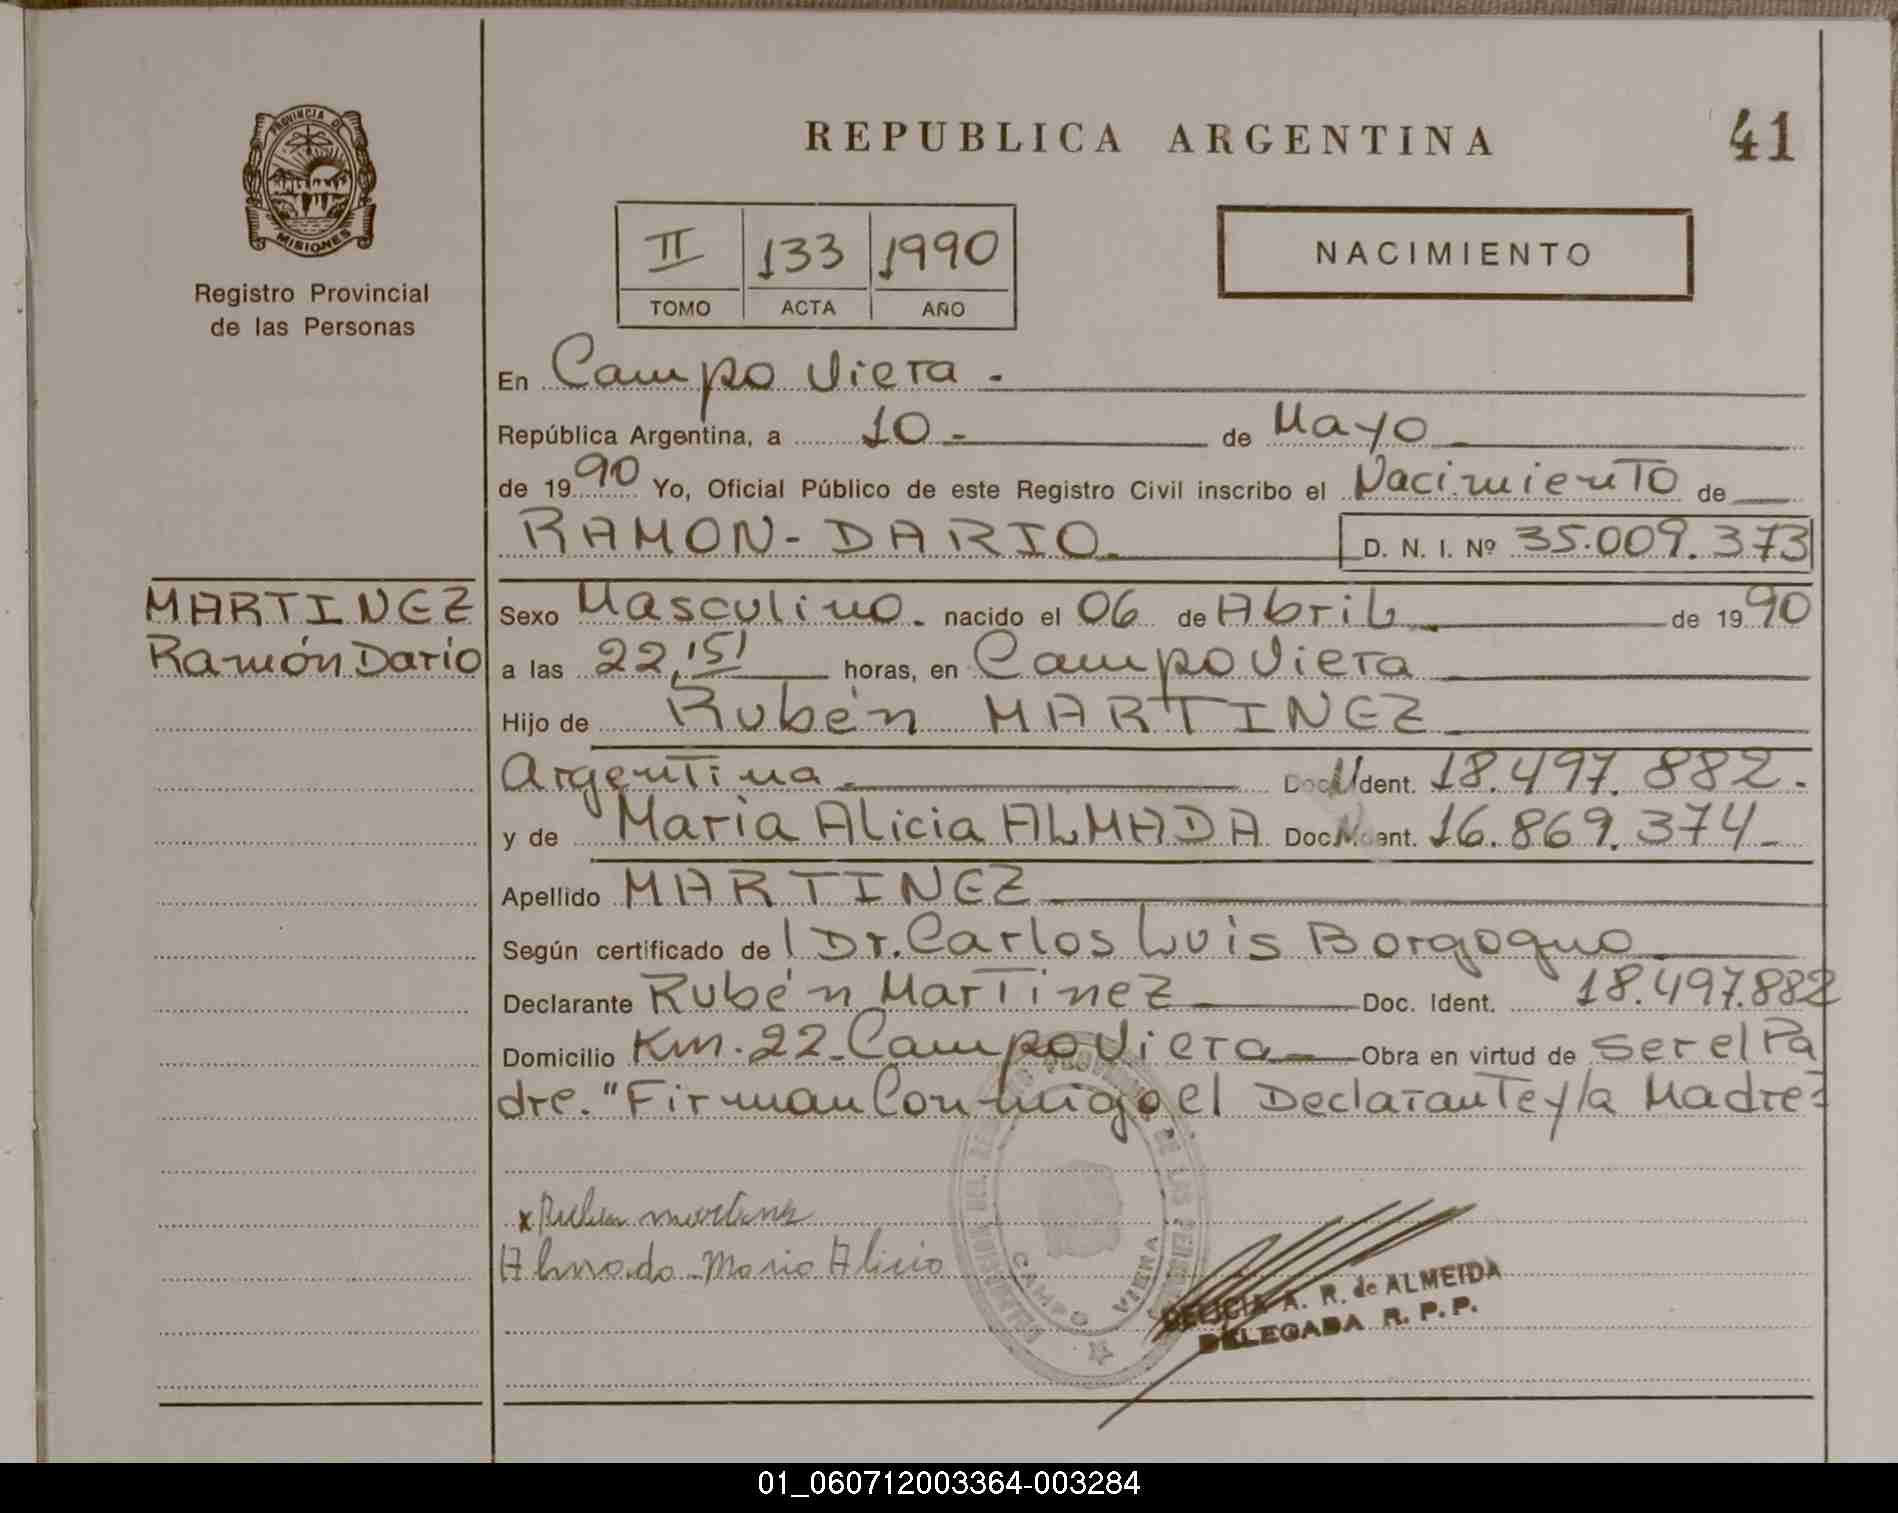 PROVINCIA DE
MISIONES
Registro Provincial
de las Personas
REPUBLICA ARGENTINA
41
II 133 1990
TOMO ACTA AÑO
NACIMIENTO
En Campo Viera -
República Argentina, a 10 - de Mayo
de 1990 Yo, Oficial Público de este Registro Civil inscribo el Nacimiento de
RAMON - DARIO D. N. I. Nº 35.009.373
MARTINEZ
Ramón Dario
Sexo Masculino. nacido el 06 de Abril de 1990
a las 22,15' horas, en Campo Viera
Hijo de Rubén MARTINEZ
Argentina Doc. Ident. 18.497.882.
y de Maria Alicia ALMADA Doc. Ident. 16.869.374 -
Apellido MARTINEZ
Según certificado de l Dr. Carlos Luis Borgogno
Declarante Rubén Martinez Doc. Ident. 18.497.882
Domicilio Km. 22 - Campo Viera Obra en virtud de ser el Pa
dre. "Firman Conmigo el Declarante y la Madre
x Ruben martines
Almada Maria Alicia
CAMPO VIERA
DELICIA A. R. de ALMEIDA
DELEGADA R. P. P.
01_060712003364-003284